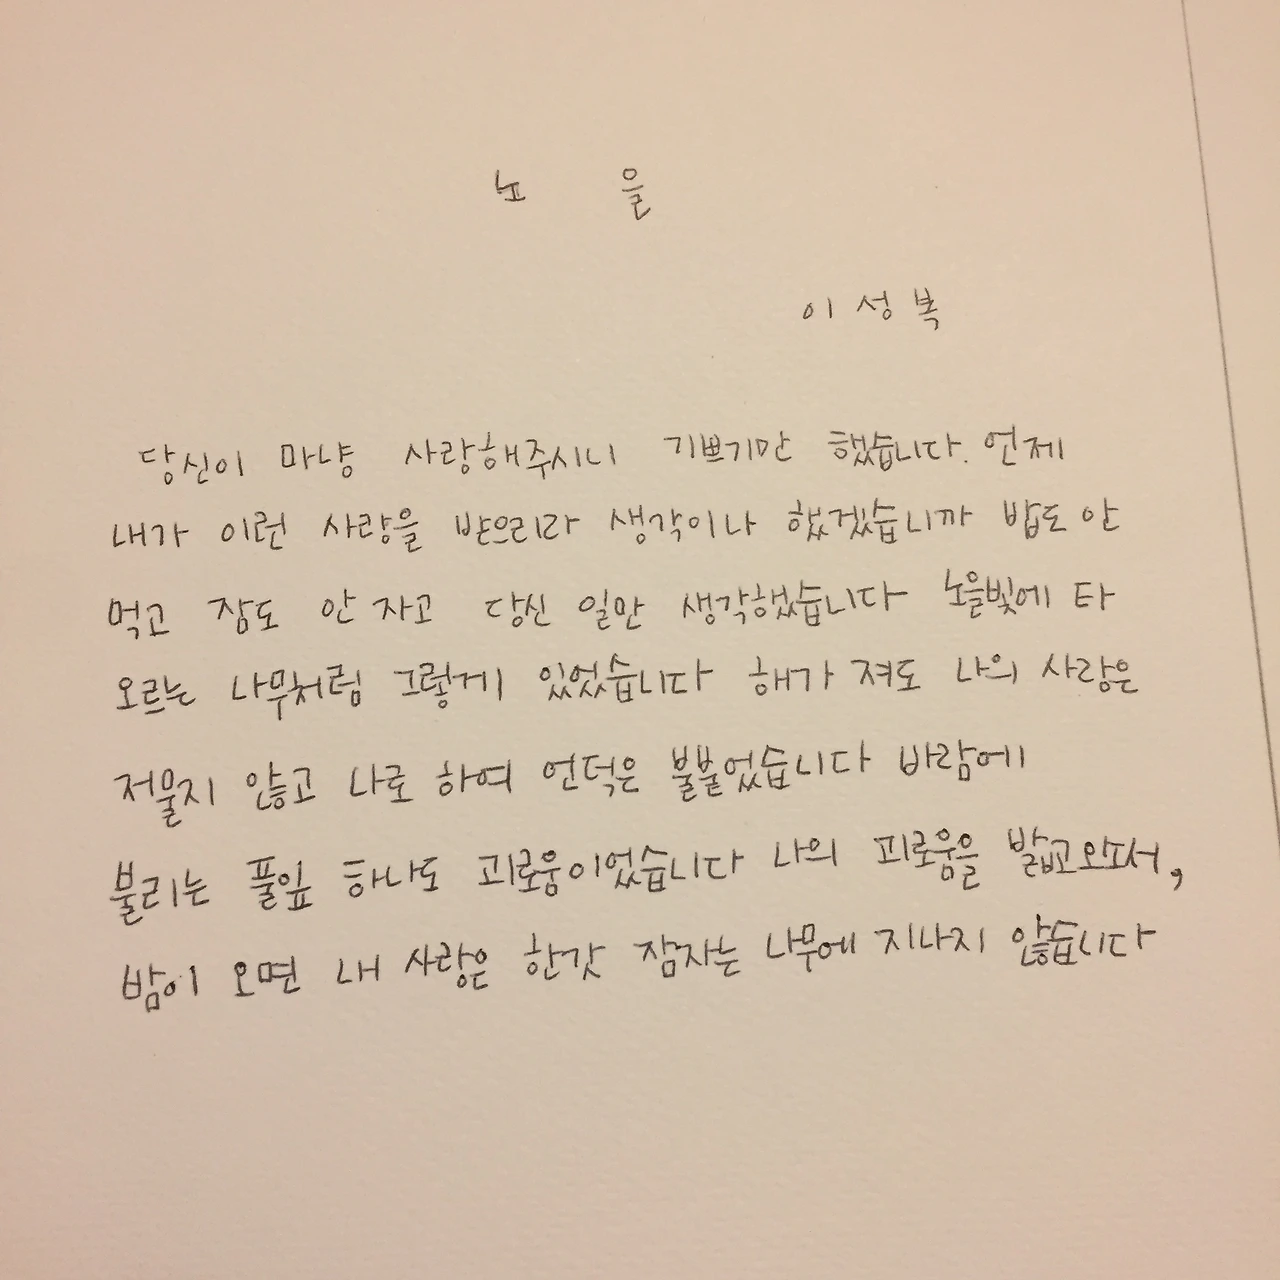 노 을
이성복
당신이 마냥 사랑해주시니 기쁘기만 했습니다. 언제
내가 이런 사랑을 받으리라 생각이나 했겠습니까 밥도 안
먹고 잠도 안 자고 당신 일만 생각했습니다 노을빛에 타
오르는 나무처럼 그렇게 있었습니다 해가 져도 나의 사랑은
저물지 않고 나로 하여 언덕은 불붙었습니다 바람에
불리는 풀잎 하나도 괴로움이었습니다 나의 괴로움을 밟고오소서,
밤이 오면 내 사랑은 한갓 잠자는 나무에 지나지 않습니다